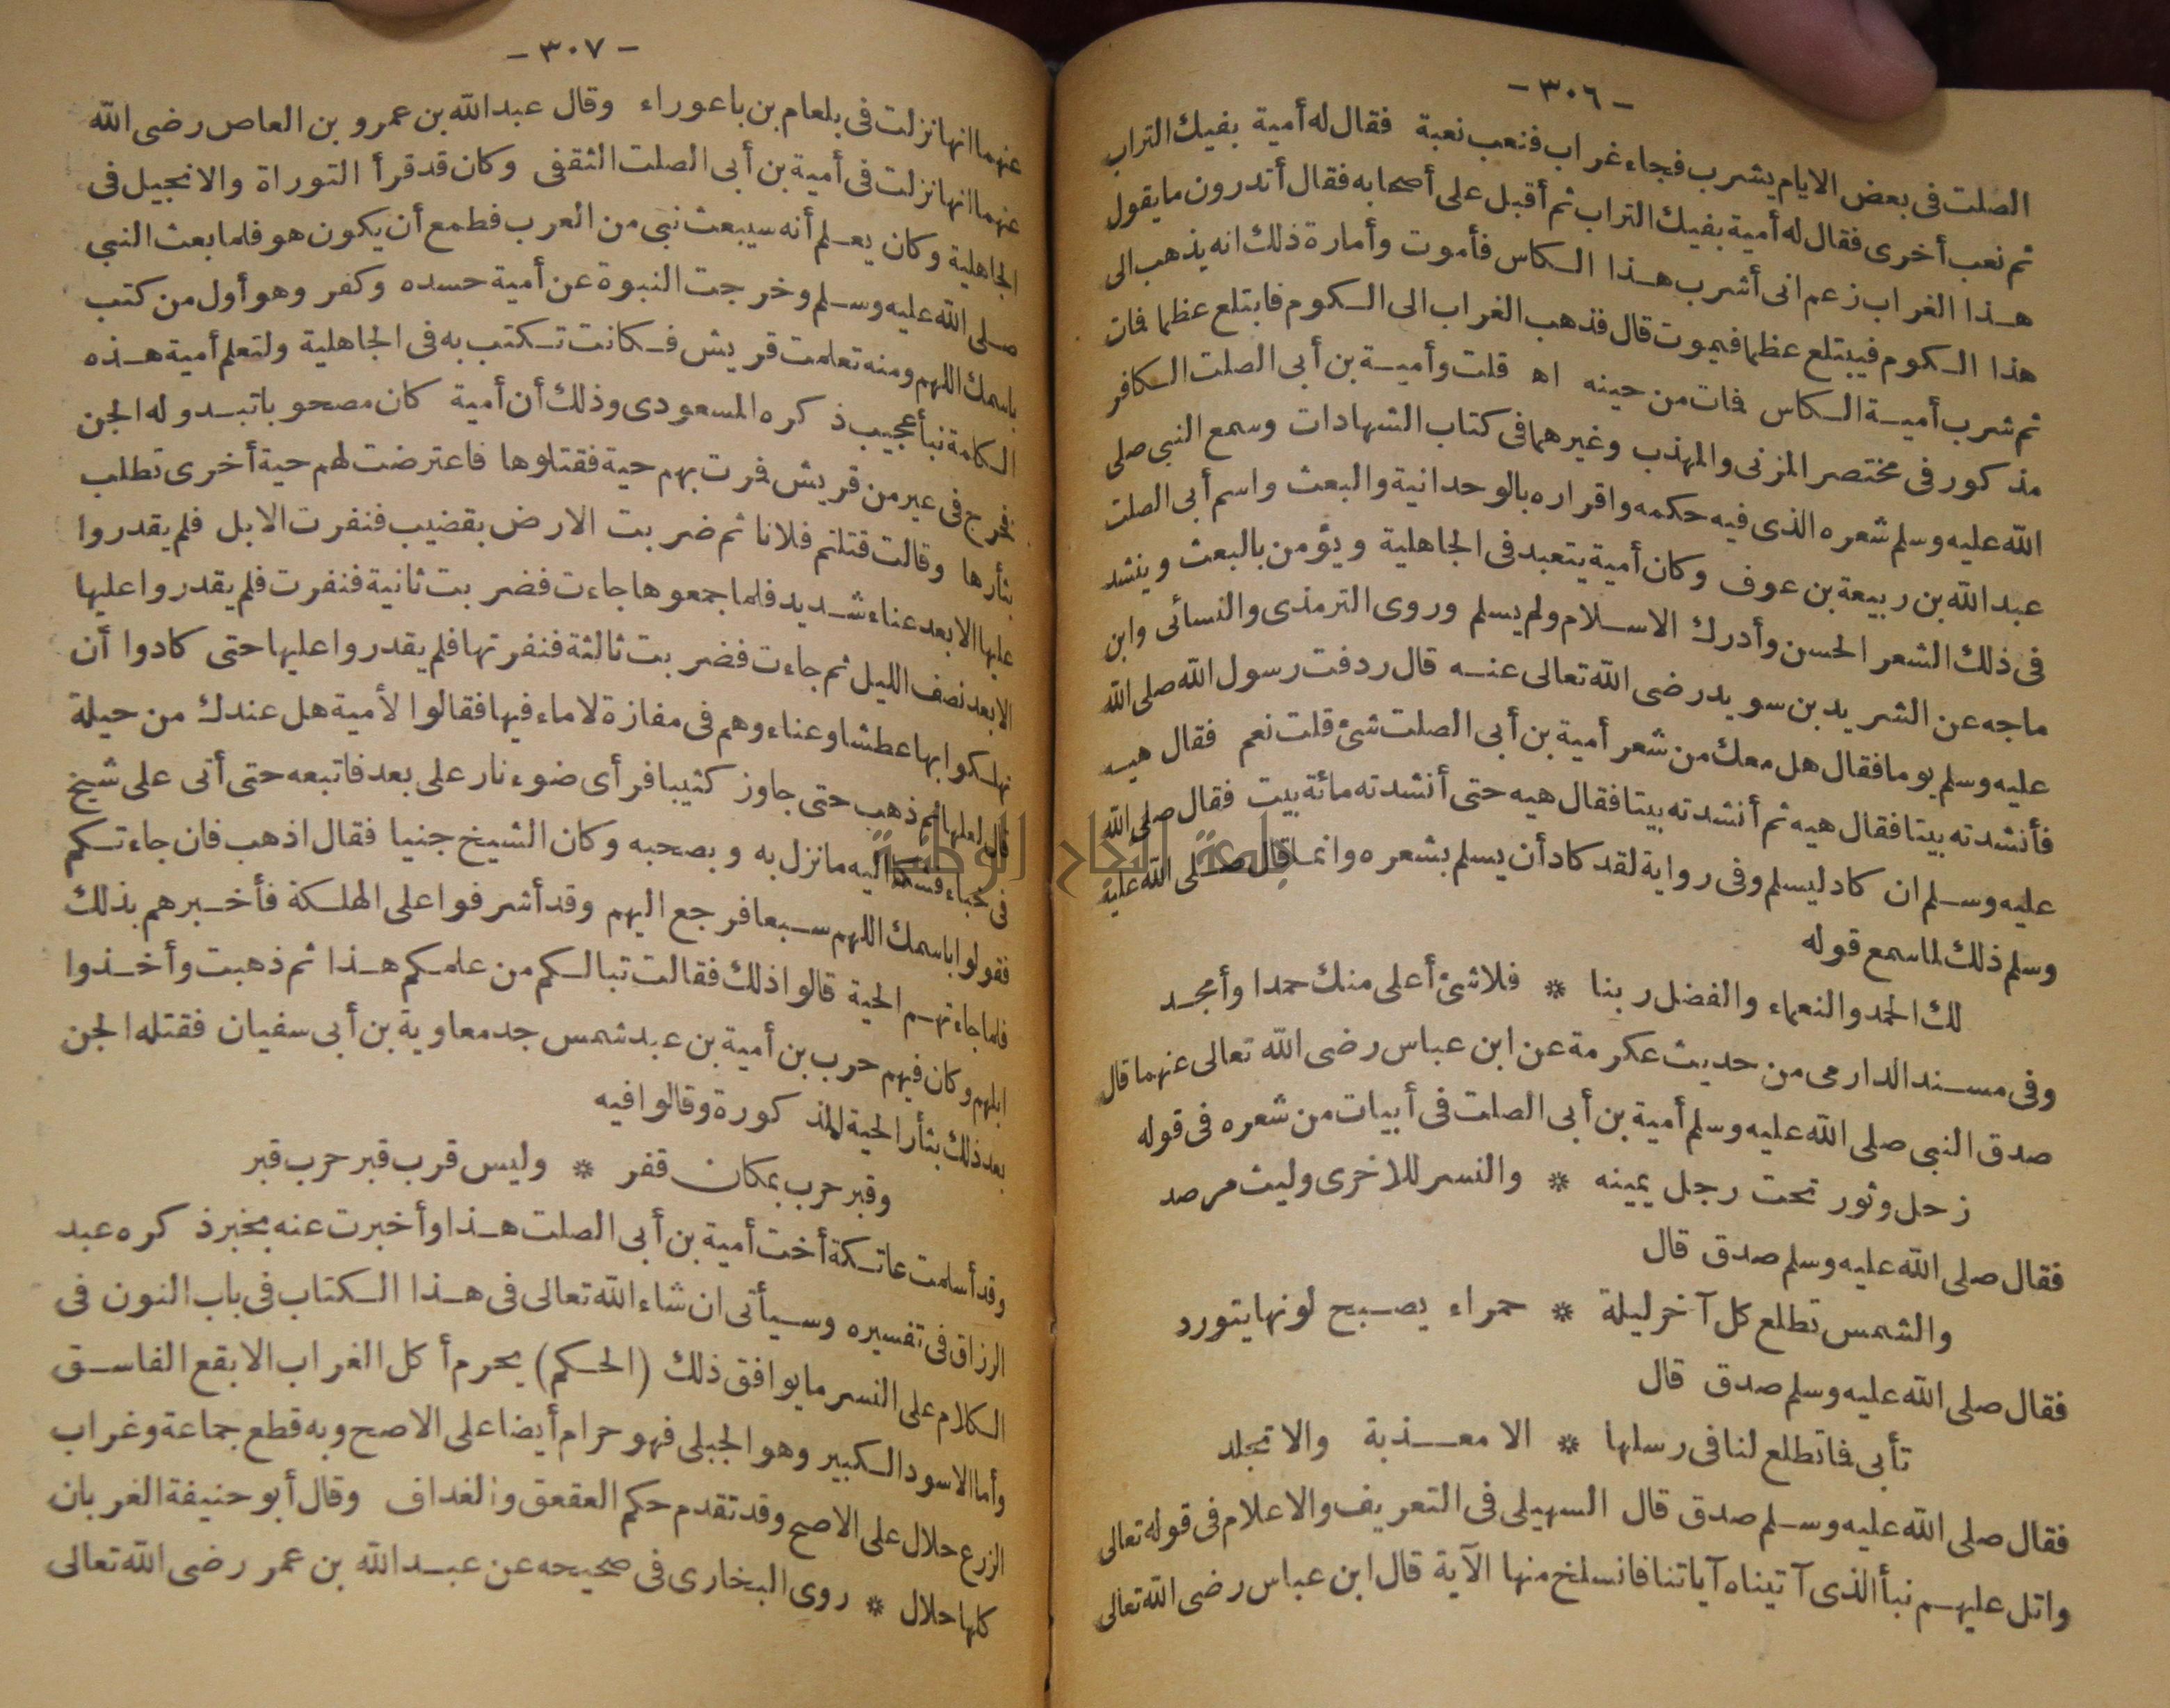 - ٣٠٦ -
الصلت فى بعض الايام يشرب فجاء غراب فنعب نعبة فقال له أمية بفيك التراب
ثم نعب أخرى فقال له أمية بفيك التراب ثم أقبل على أصحابه فقال أتدرون ما يقول
هذا الغراب زعم انى أشرب هذا الكاس فأموت وأمارة ذلك انه يذهب الى
هذا الكوم فيبتلع عظما فيموت قال فذهب الغراب الى الكوم فابتلع عظما فمات
ثم شرب أمية الكاس فمات من حينه اه قلت وأمية بن أبى الصلت الكافر
مذكور فى مختصر المزنى والمهذب وغيرهما فى كتاب الشهادات وسمع النبى صلى
الله عليه وسلم شعره الذى فيه حكمه واقراره بالوحدانية والبعث واسم أبى الصلت
عبد الله بن ربيعة بن عوف وكان أمية يتعبد فى الجاهلية ويؤمن بالبعث وينشد
فى ذلك الشعر الحسن وأدرك الاسلام ولم يسلم وروى الترمذى والنسائى وابن
ماجه عن الشريد بن سويد رضى الله تعالى عنه قال ردفت رسول الله صلى الله
عليه وسلم يوما فقال هل معك من شعر أمية بن أبى الصلت شئ قلت نعم فقال هيه
فأنشدته بيتا فقال هيه ثم أنشدته بيتا فقال هيه حتى أنشدته مائة بيت فقال صلى الله
عليه وسلم ان كاد ليسلم وفى رواية لقد كاد أن يسلم بشعره وانما قال صلى الله عليه
وسلم ذلك لما سمع قوله
لك الحمد والنعماء والفضل ربنا * فلا شئ أعلى منك حمدا وأمجد
وفى مسند الدارمى من حديث عكرمة عن ابن عباس رضى الله تعالى عنهما قال
صدق النبى صلى الله عليه وسلم أمية بن أبى الصلت فى أبيات من شعره فى قوله
زحل وثور تحت رجل يمينه * والنسر للاخرى وليث مرصد
فقال صلى الله عليه وسلم صدق قال
والشمس تطلع كل آخر ليلة * حمراء يصبح لونها يتورد
فقال صلى الله عليه وسلم صدق قال
تأبى فما تطلع لنا فى رسلها * الا معذبة والا تجلد
فقال صلى الله عليه وسلم صدق قال السهيلى فى التعريف والاعلام فى قوله تعالى
واتل عليهم نبأ الذى آتيناه آياتنا فانسلخ منها الآية قال ابن عباس رضى الله تعالى
- ٣٠٧ -
عنهما انها نزلت فى بلعام بن باعوراء وقال عبد الله بن عمرو بن العاص رضى الله
عنهما انها نزلت فى أمية بن أبى الصلت الثقفى وكان قد قرأ التوراة والانجيل فى
الجاهلية وكان يعلم أنه سيبعث نبى من العرب فطمع أن يكون هو فلما بعث النبى
صلى الله عليه وسلم وخرجت النبوة عن أمية حسده وكفر وهو أول من كتب
باسمك اللهم ومنه تعلمت قريش فكانت تكتب به فى الجاهلية ولتعلم أمية هذه
الكلمة نبأ عجيب ذكره المسعودى وذلك أن أمية كان مصحوبا تبدو له الجن
فخرج فى عير من قريش فمرت بهم حية فقتلوها فاعترضت لهم حية أخرى تطلب
بثأرها وقالت قتلتم فلانا ثم ضربت الارض بقضيب فنفرت الابل فلم يقدروا
عليها الا بعد عناء شديد فلما جمعوها جاءت فضربت ثانية فنفرت فلم يقدروا عليها
الا بعد نصف الليل ثم جاءت فضربت ثالثة فنفرتها فلم يقدروا عليها حتى كادوا أن
يهلكوا بها عطشا وعناء وهم فى مفازة لا ماء فيها فقالوا لأمية هل عندك من حيلة
قال لعلها ثم ذهب حتى جاوز كثيبا فرأى ضوء نار على بعد فاتبعه حتى أتى على شيخ
فى خباء فشكا اليه ما نزل به وبصحبه وكان الشيخ جنيا فقال اذهب فان جاءتكم
فقولوا باسمك اللهم سبعا فرجع اليهم وقد أشرفوا على الهلكة فأخبرهم بذلك
فلما جاءتهم الحية قالوا ذلك فقالت تبا لكم من علمكم هذا ثم ذهبت وأخذوا
ابلهم وكان فيهم حرب بن أمية بن عبد شمس جد معاوية بن أبى سفيان فقتله الجن
بعد ذلك بثأر الحية المذكورة وقالوا فيه
وقبر حرب بمكان قفر * وليس قرب قبر حرب قبر
وقد أسلمت عاتكة أخت أمية بن أبى الصلت هذا وأخبرت عنه بخبر ذكره عبد
الرزاق فى تفسيره وسيأتى ان شاء الله تعالى فى هذا الكتاب فى باب النون فى
الكلام على النسر ما يوافق ذلك (الحكم) يحرم أكل الغراب الابقع الفاسق
وأما الاسود الكبير وهو الجبلى فهو حرام أيضا على الاصح وبه قطع جماعة وغراب
الزرع حلال على الاصح وقد تقدم حكم العقعق والغداف وقال أبو حنيفة الغربان
كلها حلال * روى البخارى فى صحيحه عن عبد الله بن عمر رضى الله تعالى
جامعة النجاح الوطنية